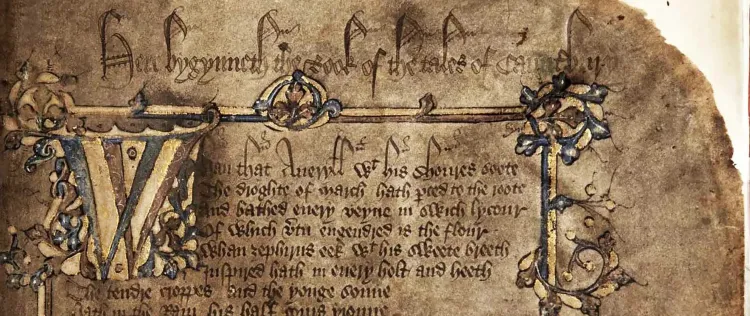 Here bygynneth the Book of the tales of Caunt̄bury
Whan that Aueryłł wt his shoures soote
The droghte of march hath ꝑced to the roote
And bathed euery veyne in swich lycour
Of which v̄tu engendred is the flour
Whan zephirus eek wt his sweete breeth
Inspired hath in euery holt and heeth
The tendre croppes and the yonge sonne
hath in the Ram his half cours yronne